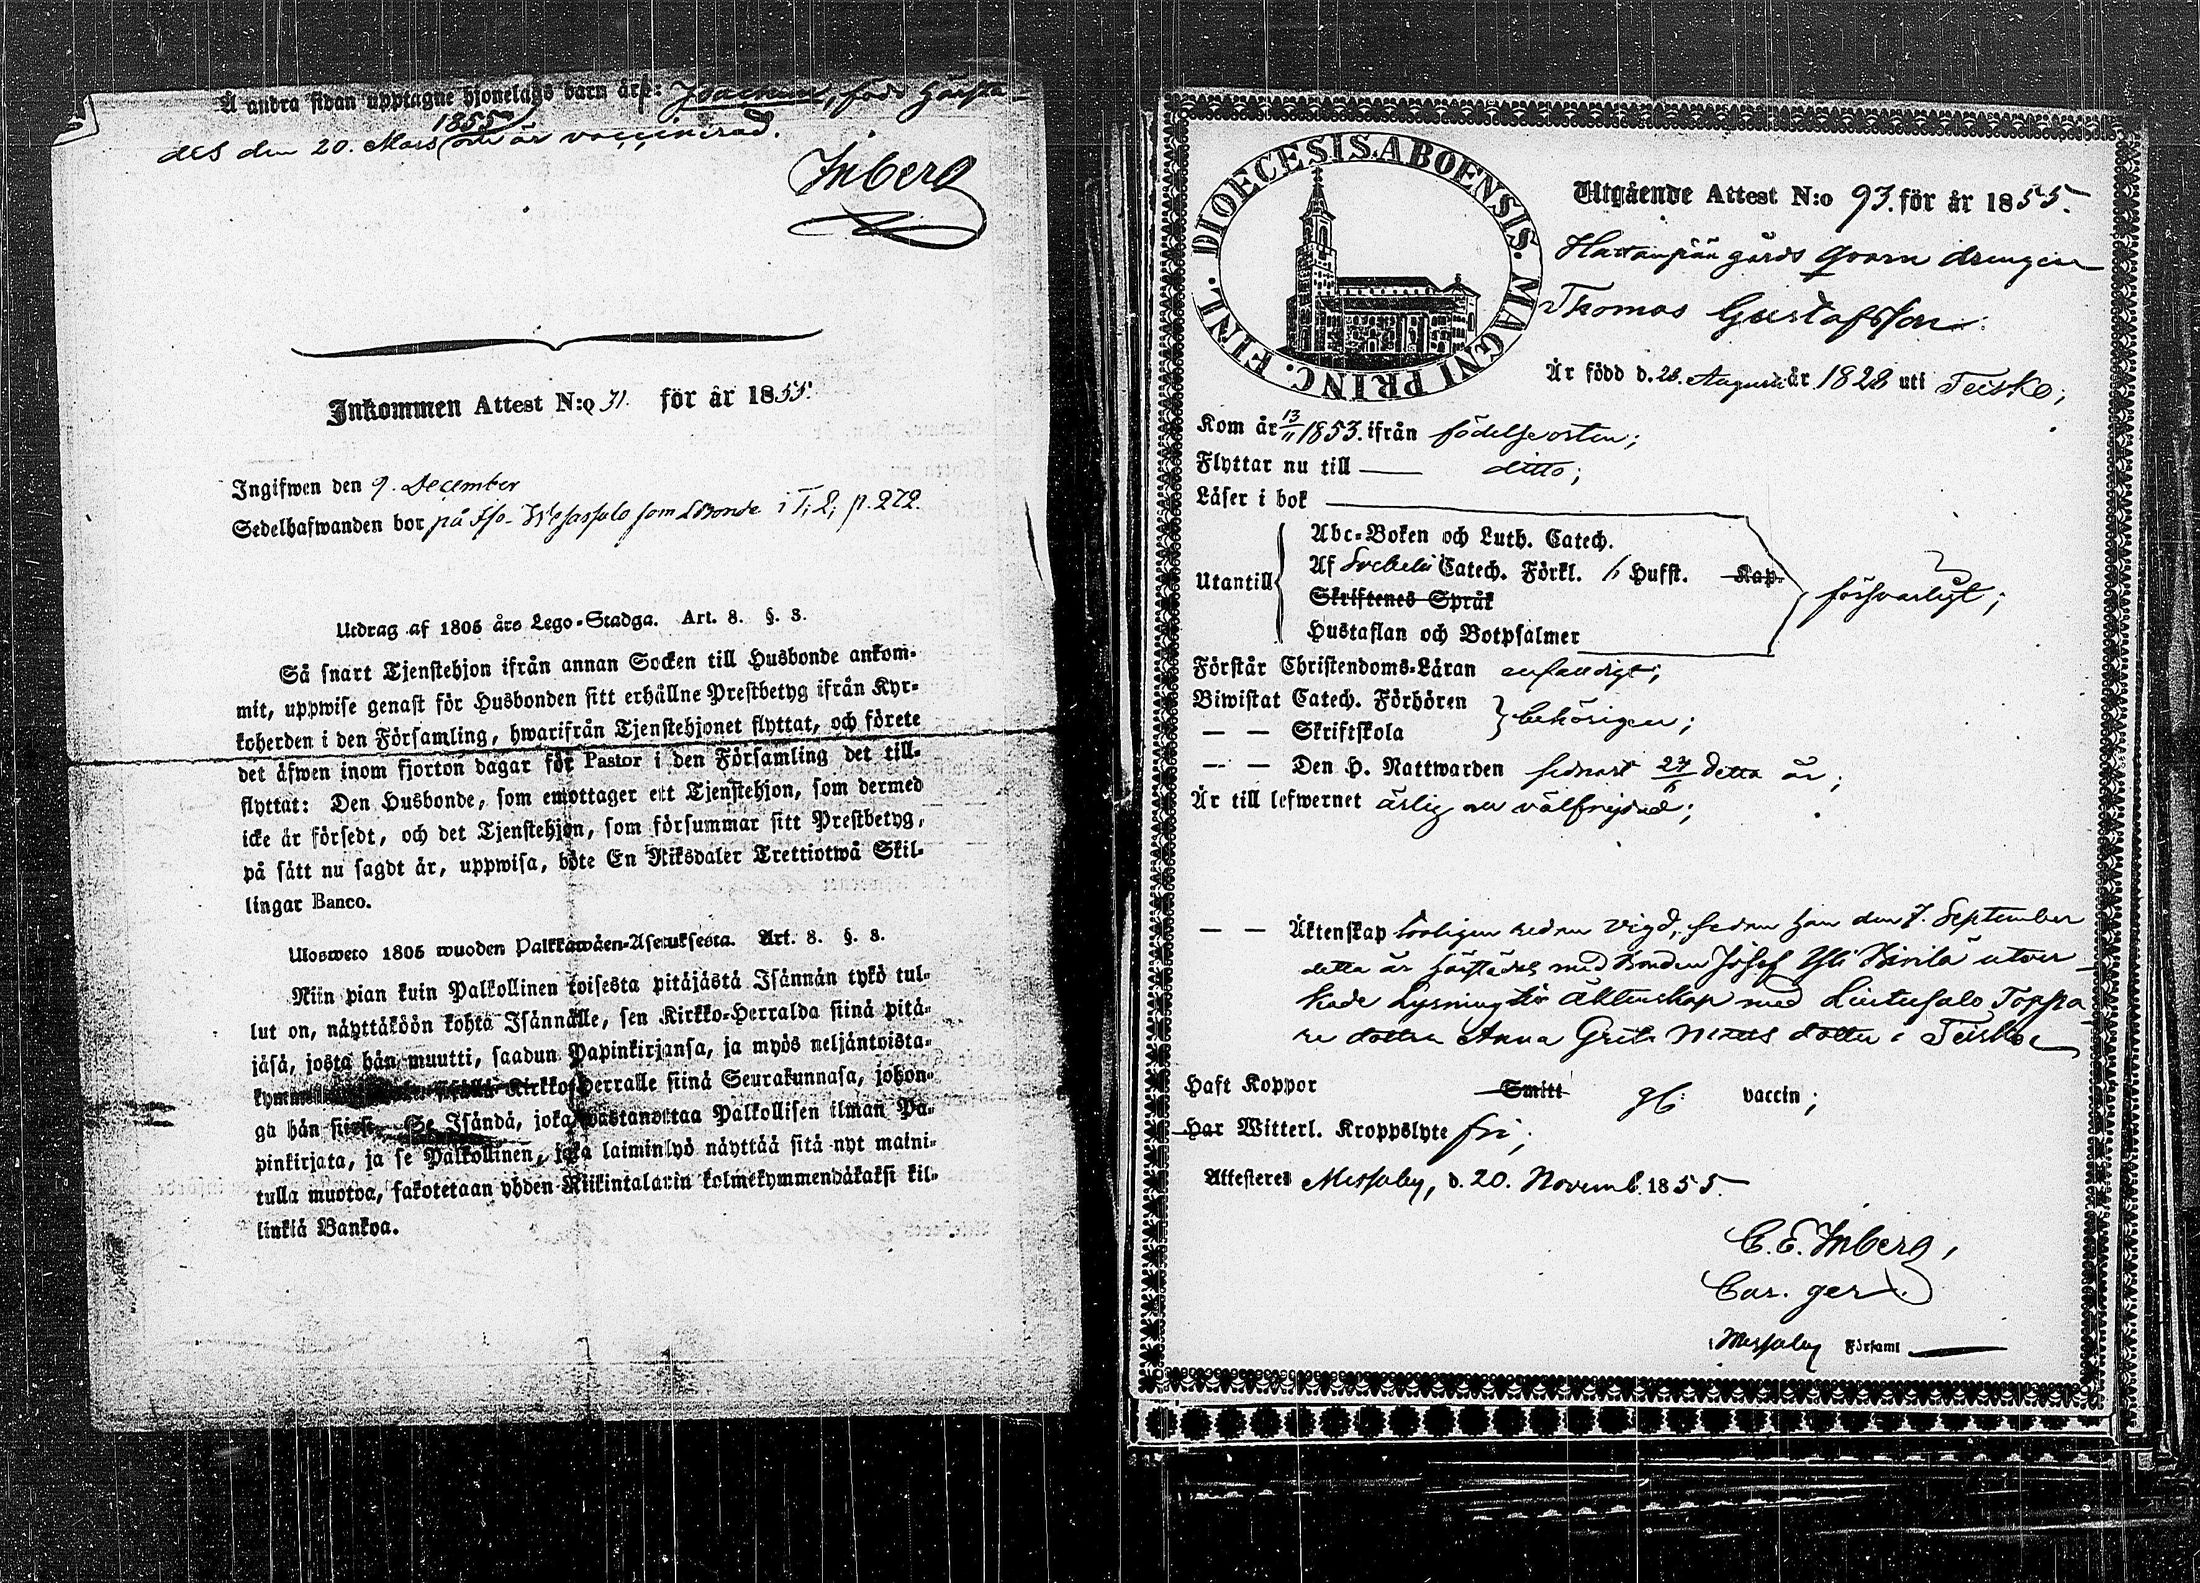 Å andra sidan upptagne hjonelags barn är: Joachim, född härstä-
des den 20. Mars 1855 och är vaccinerad.
Inberg
Inkommen Attest N:o 31. för år 1855.
Ingifwen den 9. December
Sedelhafwanden bor på Iso- som Bonde i T. 2, p. 272.
Utdrag af 1805 års Lego-Stadga. Art. 8. §. 3.
Så snart Tjenstehjon ifrån annan Socken till Husbonde ankom-
mit, uppwise genast för Husbonden sitt erhållne Prestbetyg ifrån Kyr-
koherden i den Församling, hwarifrån Tjenstehjonet flyttat, och förete
det äfwen inom fjorton dagar för Pastor i den Församling det till-
flyttat: Den Husbonde, som emottager ett Tjenstehjon, som dermed
icke är försedt, och det Tjenstehjon, som försummar sitt Prestbetyg,
på sätt nu sagdt är, uppwisa, böte En Riksdaler Trettiotwå Skil-
lingar Banco.
Ulosweto 1805 wuoden Palkkawäen-Asetuksesta. Art. 8. §. 3.
Niin pian kuin Palkollinen toisesta pitäjästä Isännän tykö tul-
lut on, näyttäköön kohta Isännälle, sen Kirkko-Herralda siinä pitä-
jäsä, josta hän muutti, saadun Papinkirjansa, ja myös neljäntoista-
Kirkko-Herralle siinä Seurakunnasa, johon-
ga hän Se Isändä, joka wastanottaa Palkollisen ilman Pa-
pinkirjata, ja se Palkollinen, joka laiminlyö näyttää sitä nyt maini-
tulla muotoa, sakotetaan yhden Riikintalarin kolmekymmendäkaksi kil-
linkiä Bankoa.
DIOECESIS ABOENSIS. MAGNI PRINC. FINL.
Utgående Attest N:o 93. för år 1855.
Hatanpää gårds qvarn drengen
Thomas Gustafsson.
Är född d. 28. Augusti år 1828 uti Teisko;
Kom år 13/11 1853. ifrån födelseorten;
Flyttar nu till — ditto;
Läser i bok
Utantill
Abc-Boken och Luth. Catech.
Af Svebelii Catech. Förkl. 6 Hufst. Kap.
Skriftenes Språk
Hustaflan och Botpsalmer
försvarligt;
Förstår Christendoms-Läran enfaldigt;
Biwistat Catech. Förhören
— — Skriftskola
behörigen;
— — Den H. Nattwarden sednast 24/6 detta år;
Är till lefwernet ärlig och välfrejdad;
— — Äktenskap vigd, sedan han den 7. September
detta år härstädes med bonden Josef Yli Kivilä utver-
kade Lysning för äktenskap med Lintusalo Toppa-
re dottern Anna Greta Matts dotter i Teisko.
Haft Koppor Smitt gh: vaccin;
Har Witterl. Kroppslyte fri;
Attesteres Messuby, d. 20. Novemb. 1855.
C. E. Inberg,
Cur. ger.
i Messuby Församl